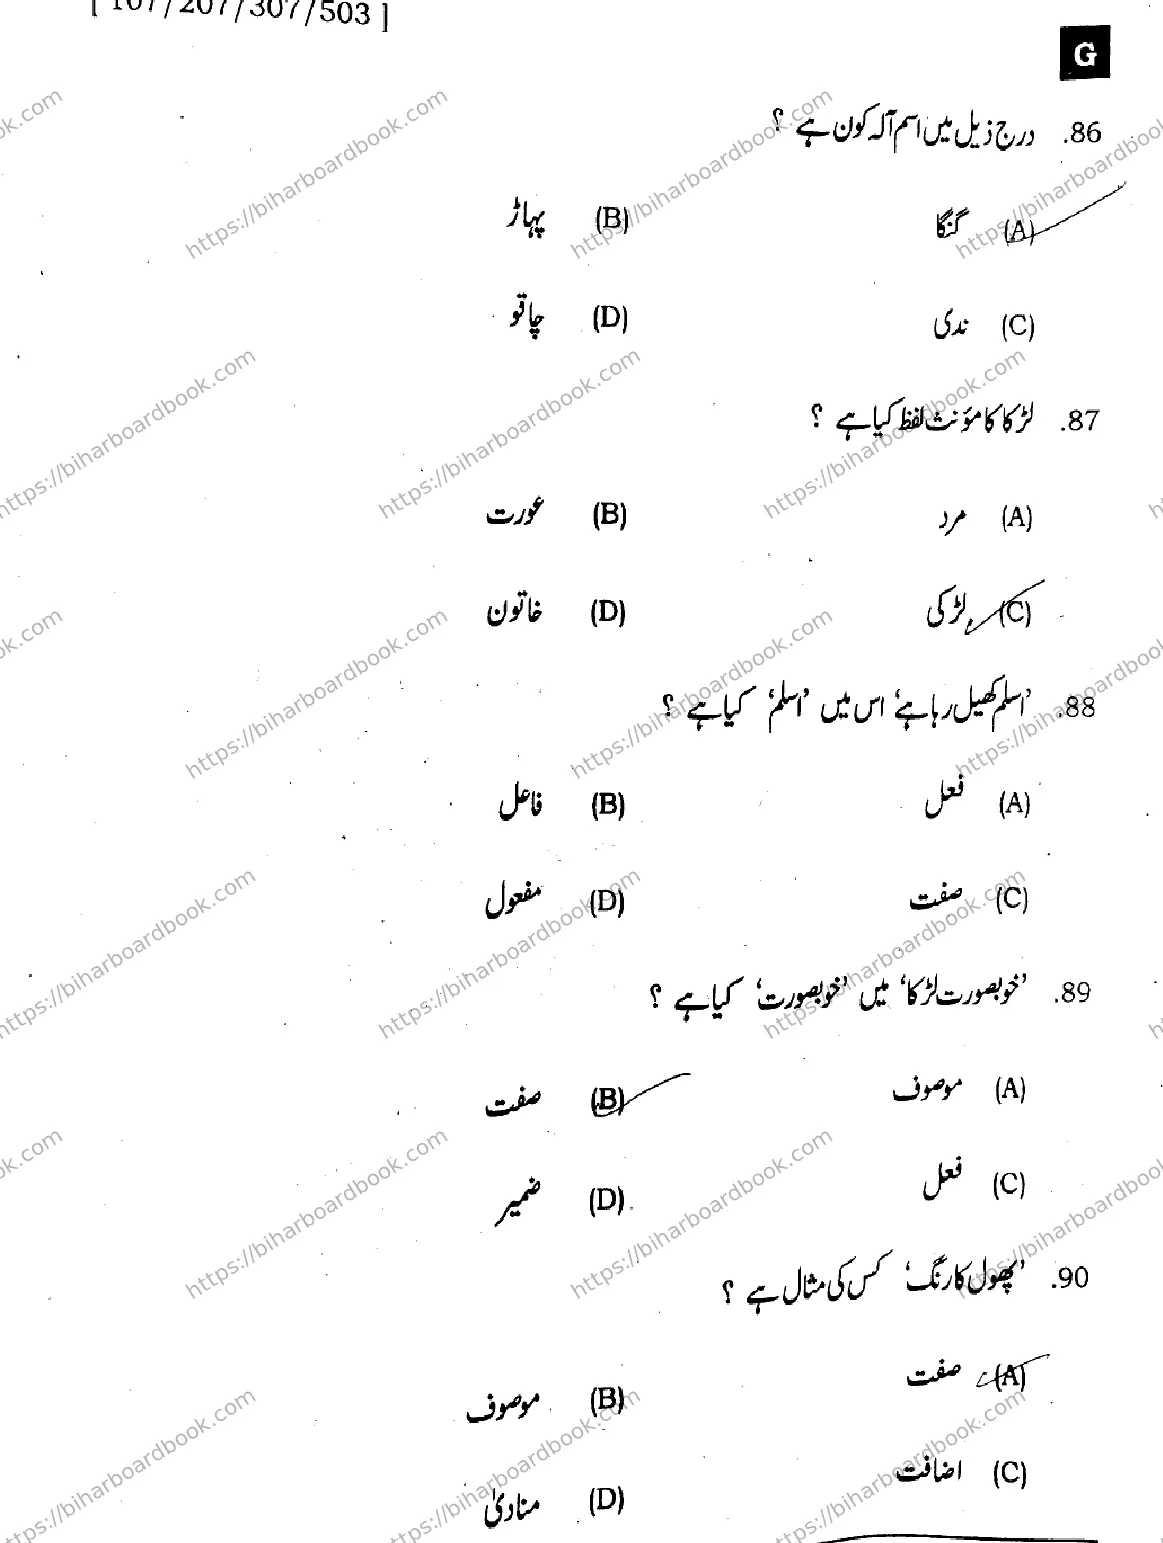 [ 107/207/307/503 ]
G
86. درج ذیل میں اسم آلہ کون ہے ؟
(A) گنگا (B) پہاڑ
(C) ندی (D) چاقو
87. لڑکا کا مؤنث لفظ کیا ہے ؟
(A) مرد (B) عورت
(C) لڑکی (D) خاتون
88. 'اسلم کھیل رہا ہے' اس میں 'اسلم' کیا ہے ؟
(A) فعل (B) فاعل
(C) صفت (D) مفعول
89. 'خوبصورت لڑکا' میں 'خوبصورت' کیا ہے ؟
(A) موصوف (B) صفت
(C) فعل (D) ضمیر
90. 'پھول کا رنگ' کس کی مثال ہے ؟
(A) صفت (B) موصوف
(C) اضافت (D) منادیٰ
https://biharboardbook.com